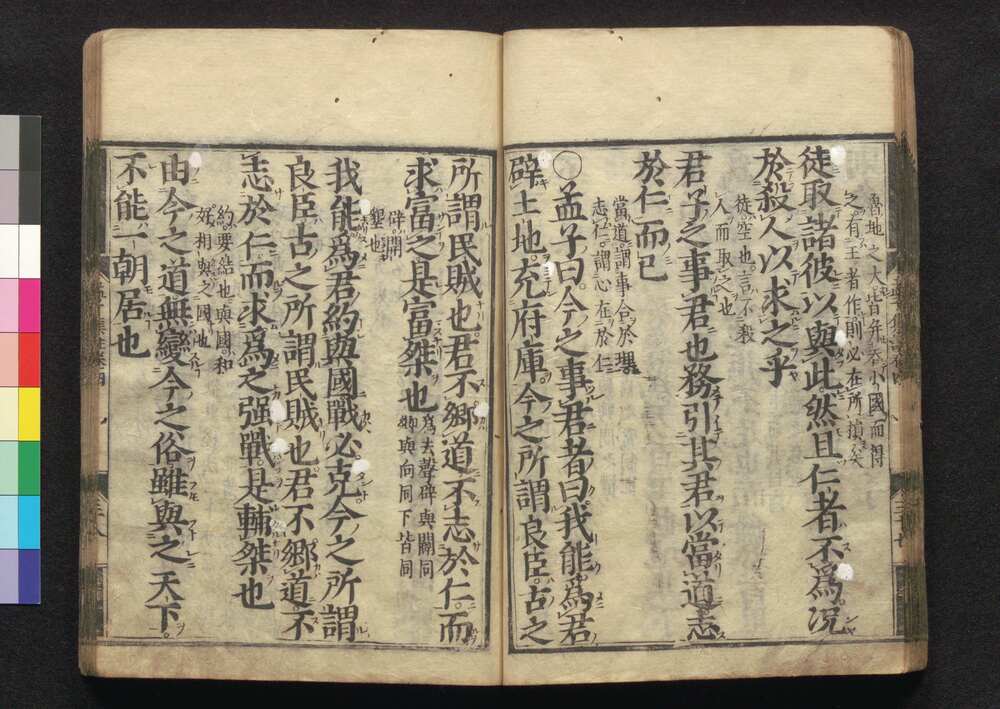 魯地之大皆幷呑小國而得
之有王者作則必在所損矣
徒取諸彼以與此然且仁者不爲況
於殺人以求之乎
徒空也言不殺
人而取之也
君子之事君也務引其君以當道志
於仁而已
當道謂事合於理
志仁謂心在於仁
○孟子曰今之事君者曰我能爲君
辟土地充府庫今之所謂良臣古之
所謂民賊也君不鄕道不志於仁而
求富之是富桀也
爲去聲辟與闢同
鄕與向同下皆同
辟開
墾也
我能爲君約與國戰必克今之所謂
良臣古之所謂民賊也君不鄕道不
志於仁而求爲之强戰是輔桀也
約要結也與國和
好相與之國也
由今之道無變今之俗雖與之天下
不能一朝居也